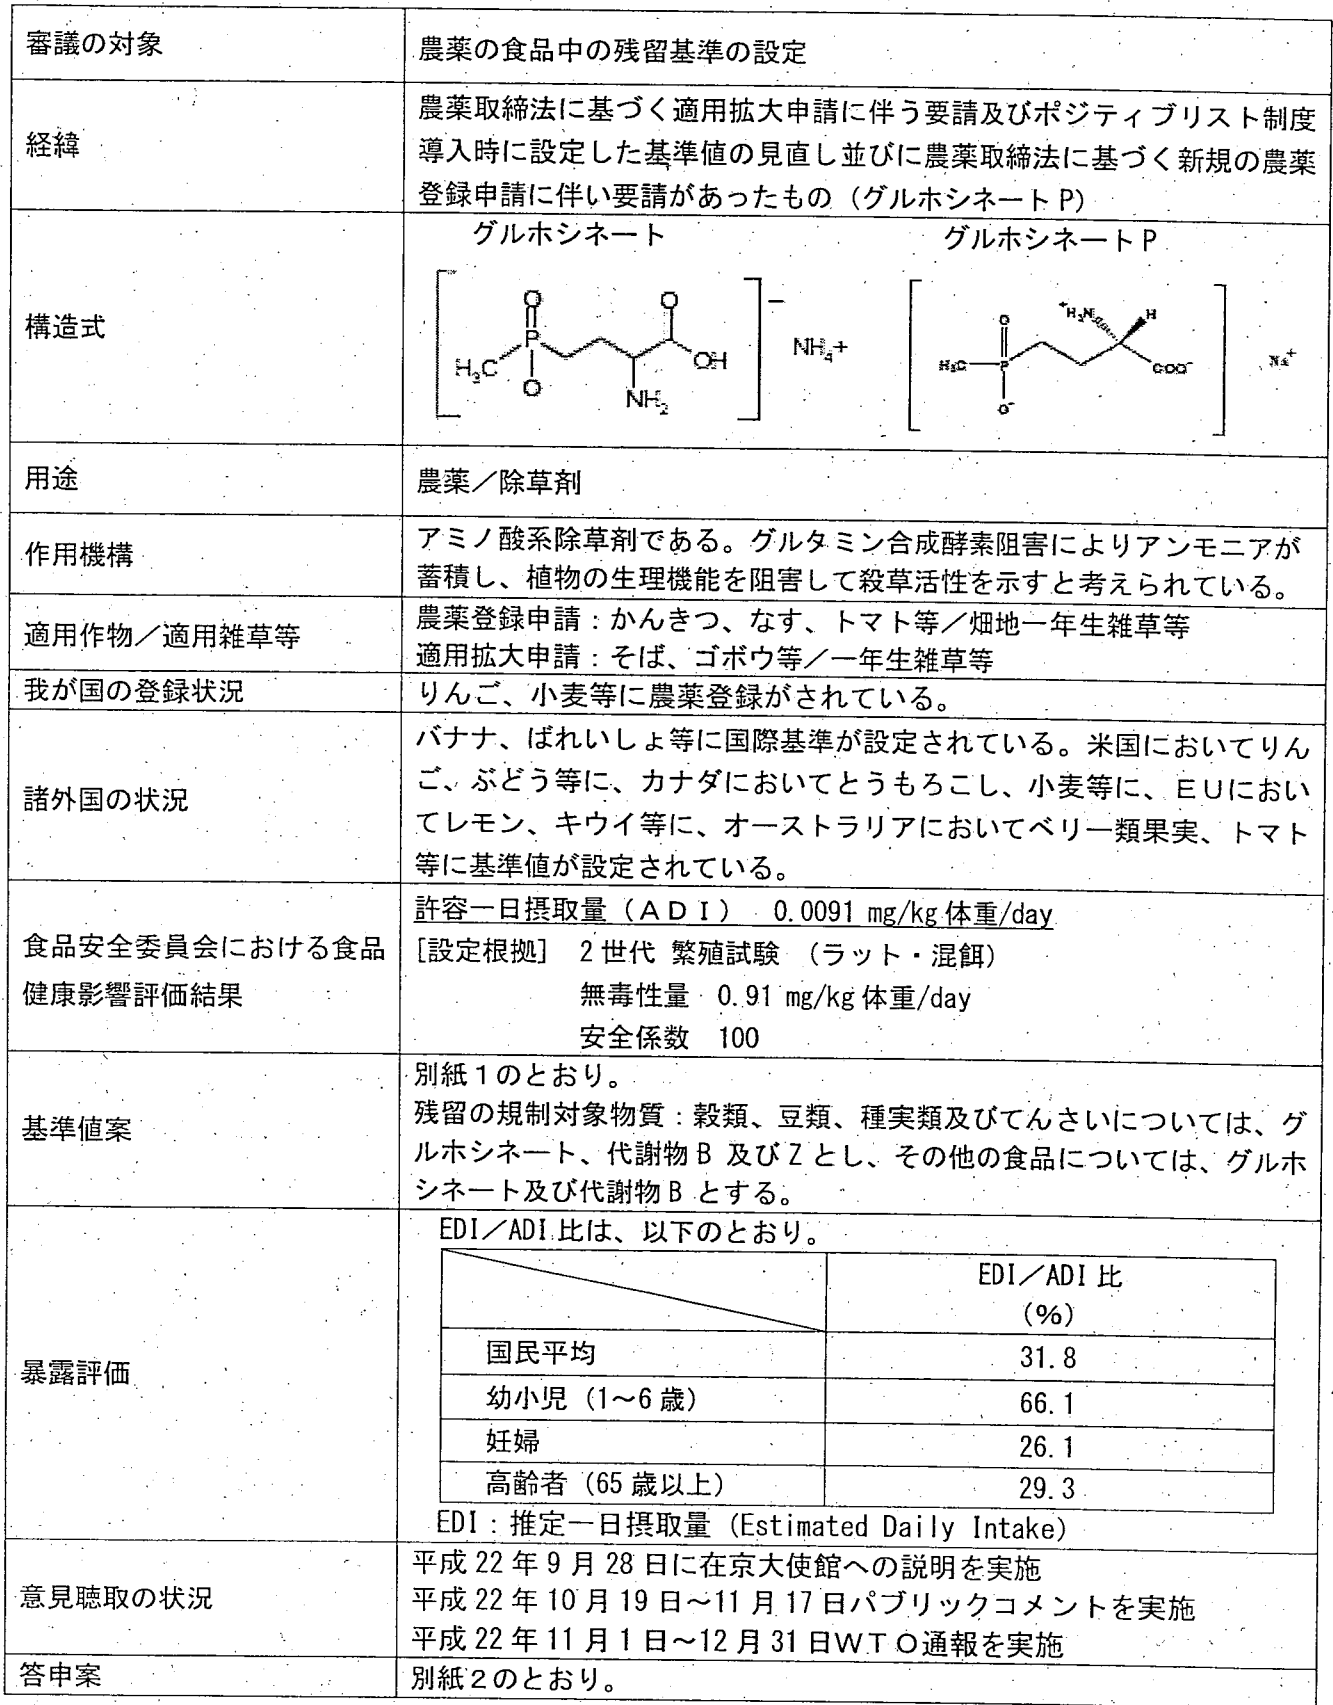 審議の対象
農薬の食品中の残留基準の設定
経緯
農薬取締法に基づく適用拡大申請に伴う要請及びポジティブリスト制度
導入時に設定した基準値の見直し並びに農薬取締法に基づく新規の農薬
登録申請に伴い要請があったもの（グルホシネートP）
構造式
グルホシネート　グルホシネートP
O　O
P
H3C　OH
O　NH2
－
NH4+
+H3N　H
O
H3C　P　COO-
O-
Na+
用途
農薬／除草剤
作用機構
アミノ酸系除草剤である。グルタミン合成酵素阻害によりアンモニアが
蓄積し、植物の生理機能を阻害して殺草活性を示すと考えられている。
適用作物／適用雑草等
農薬登録申請：かんきつ、なす、トマト等／畑地一年生雑草等
適用拡大申請：そば、ゴボウ等／一年生雑草等
我が国の登録状況
りんご、小麦等に農薬登録がされている。
諸外国の状況
バナナ、ばれいしょ等に国際基準が設定されている。米国においてりん
ご、ぶどう等に、カナダにおいてとうもろこし、小麦等に、ＥＵにおい
てレモン、キウイ等に、オーストラリアにおいてベリー類果実、トマト
等に基準値が設定されている。
食品安全委員会における食品
健康影響評価結果
許容一日摂取量（ＡＤＩ）　0.0091 mg/kg体重/day
[設定根拠]　2世代 繁殖試験　（ラット・混餌）
無毒性量　0.91 mg/kg体重/day
安全係数　100
基準値案
別紙１のとおり。
残留の規制対象物質：穀類、豆類、種実類及びてんさいについては、グ
ルホシネート、代謝物B 及びZとし、その他の食品については、グルホ
シネート及び代謝物B とする。
暴露評価
EDI／ADI比は、以下のとおり。
EDI／ADI 比
(%)
国民平均　31.8
幼小児（1～6 歳）　66.1
妊婦　26.1
高齢者（65 歳以上）　29.3
EDI：推定一日摂取量 (Estimated Daily Intake)
意見聴取の状況
平成 22 年 9 月 28 日に在京大使館への説明を実施
平成 22 年 10 月 19 日～11 月 17 日パブリックコメントを実施
平成 22 年 11 月 1 日～12 月 31 日ＷＴＯ通報を実施
答申案
別紙２のとおり。